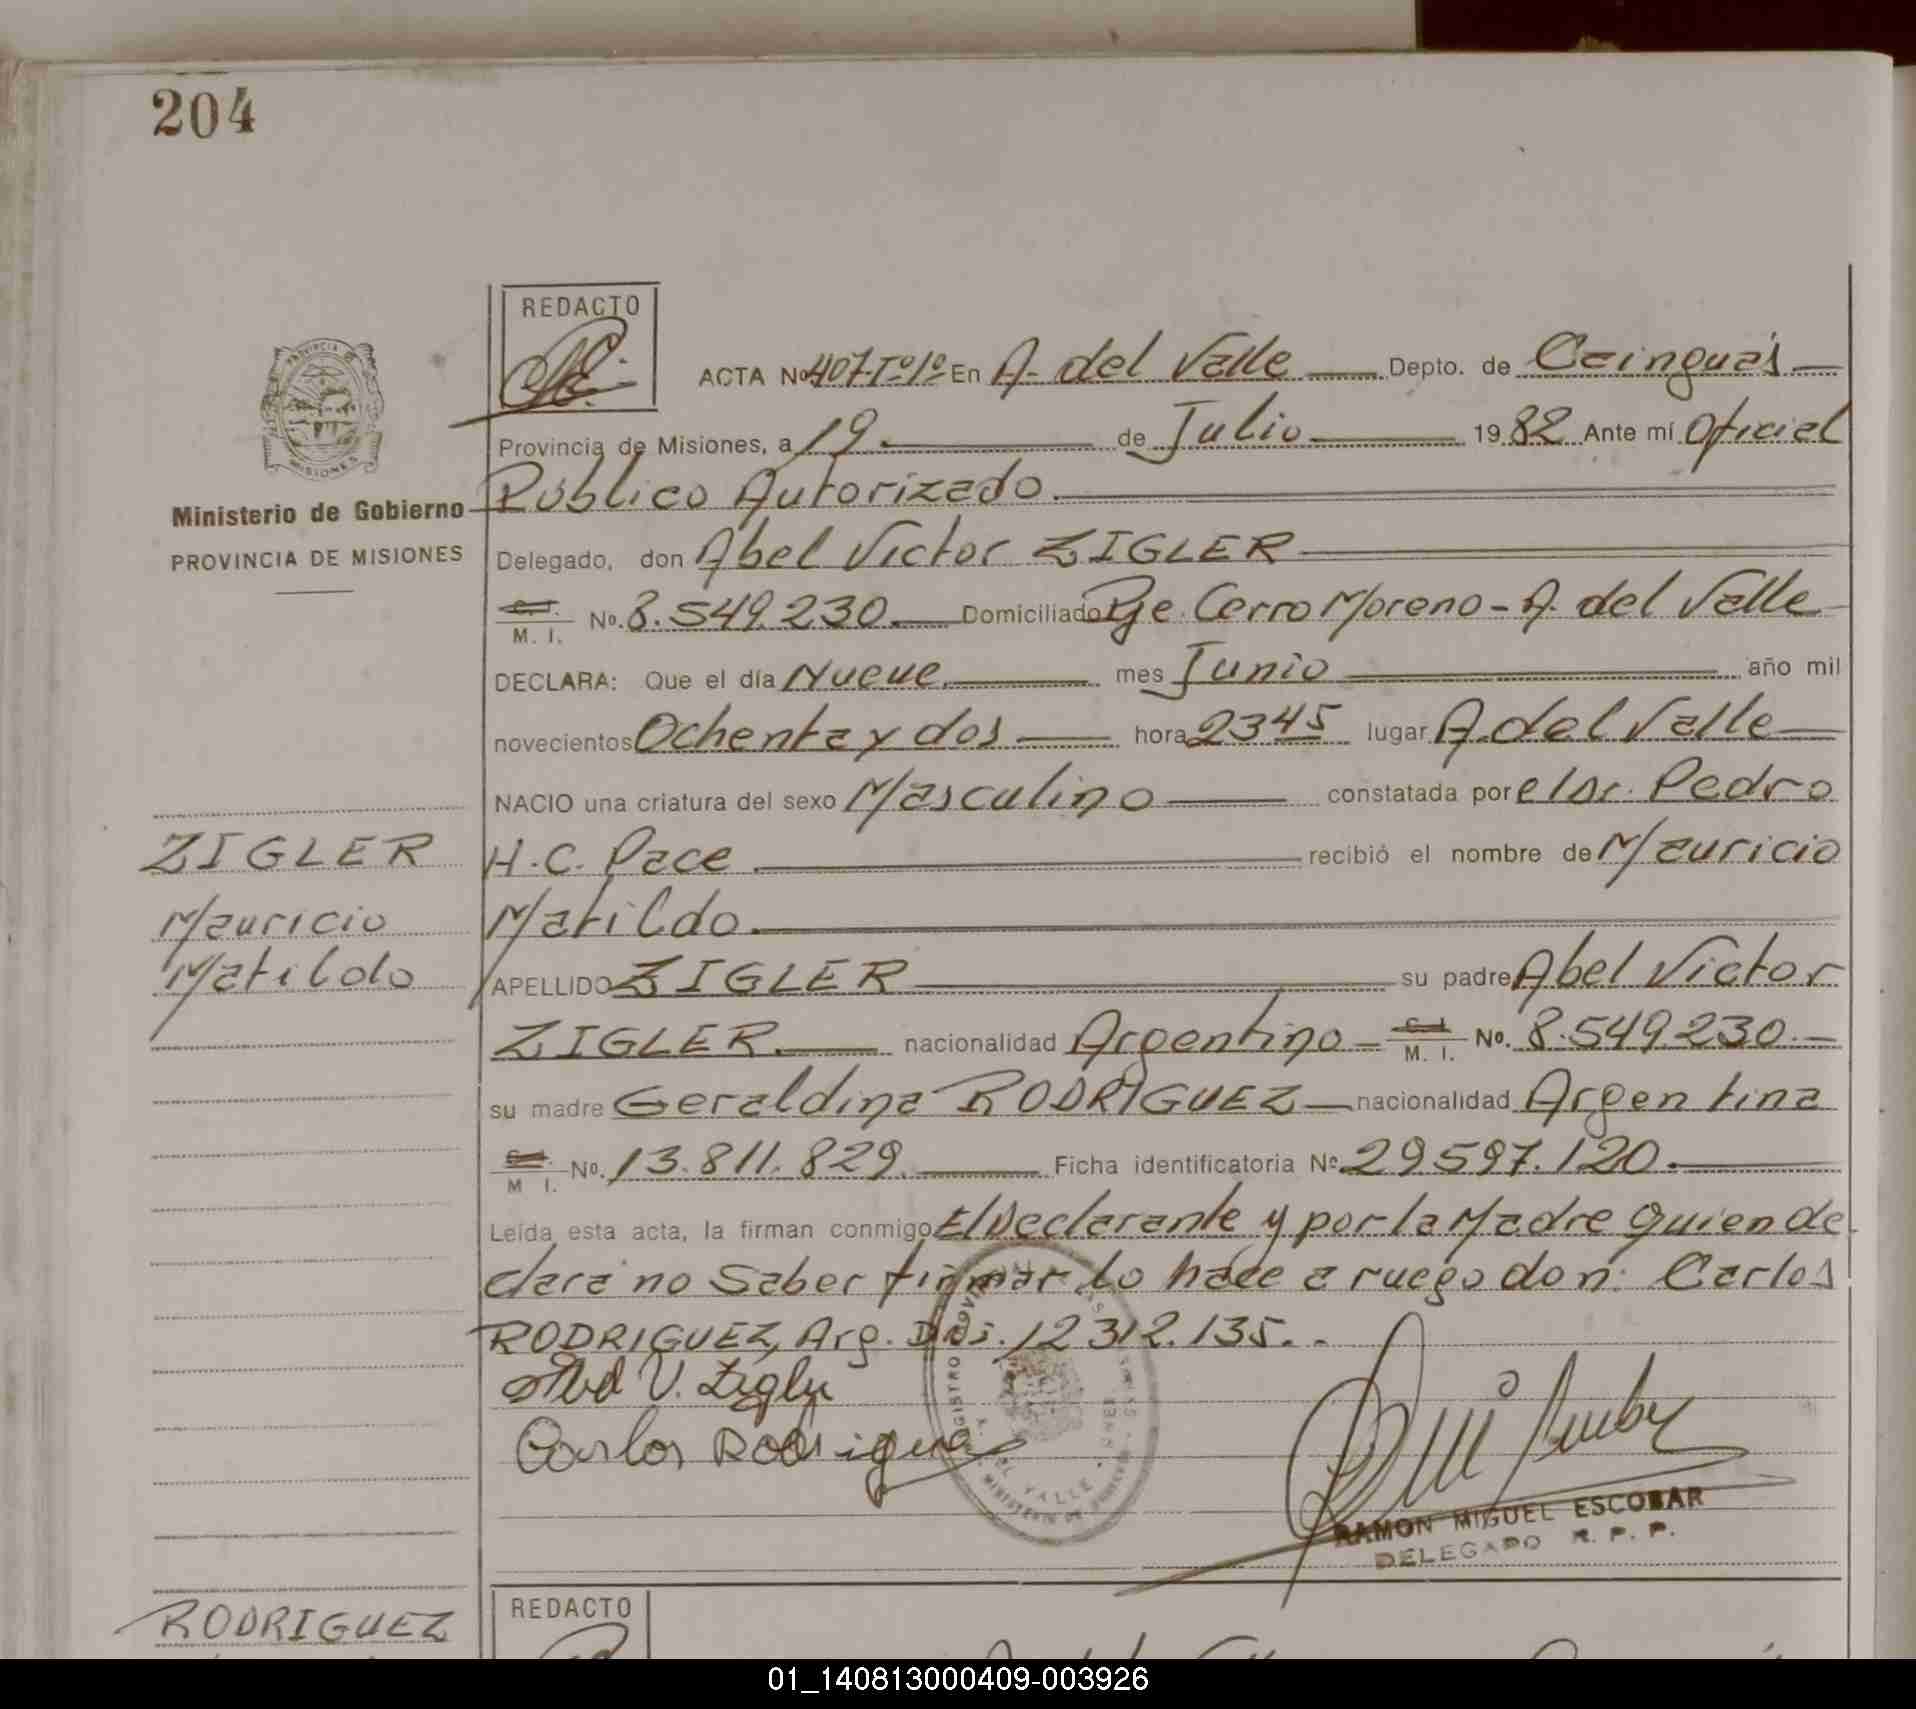 204
REDACTO
ACTA Nº 407-Tº1º En A. del Valle Depto. de Cainguás
Provincia de Misiones, a 19 de Julio 1982 Ante mí Oficial
Público Autorizado
Delegado, don Abel Victor ZIGLER
C. I.
M. I. No. 8.549.230 Domiciliado Pje. Cerro Moreno - A. del Valle
DECLARA: Que el día Nueve mes Junio año mil
novecientos Ochenta y dos hora 23 45 lugar A. del Valle
NACIO una criatura del sexo Masculino constatada por el Dr. Pedro
H. C. Pace recibió el nombre de Mauricio
Matildo
APELLIDO ZIGLER su padre Abel Victor
ZIGLER nacionalidad Argentino C. I. M. I. No. 8.549.230
su madre Geraldina RODRIGUEZ nacionalidad Argentina
C. I. M. I. No. 13.811.829 Ficha identificatoria Nº 29.597.120
Leída esta acta, la firman conmigo El Declarante y por la Madre quien de
clara no Saber firmar lo hace a ruego don: Carlos
RODRIGUEZ, Arg. 12 312.135.
Abel V. Zigler
Carlos Rodriguez
RAMON MIGUEL ESCOBAR
DELEGADO R. P. P.
PROVINCIA
MISIONES
Ministerio de Gobierno
PROVINCIA DE MISIONES
ZIGLER
Mauricio
Matildo
REGISTRO
VALLE
RODRIGUEZ
REDACTO
01_140813000409-003926